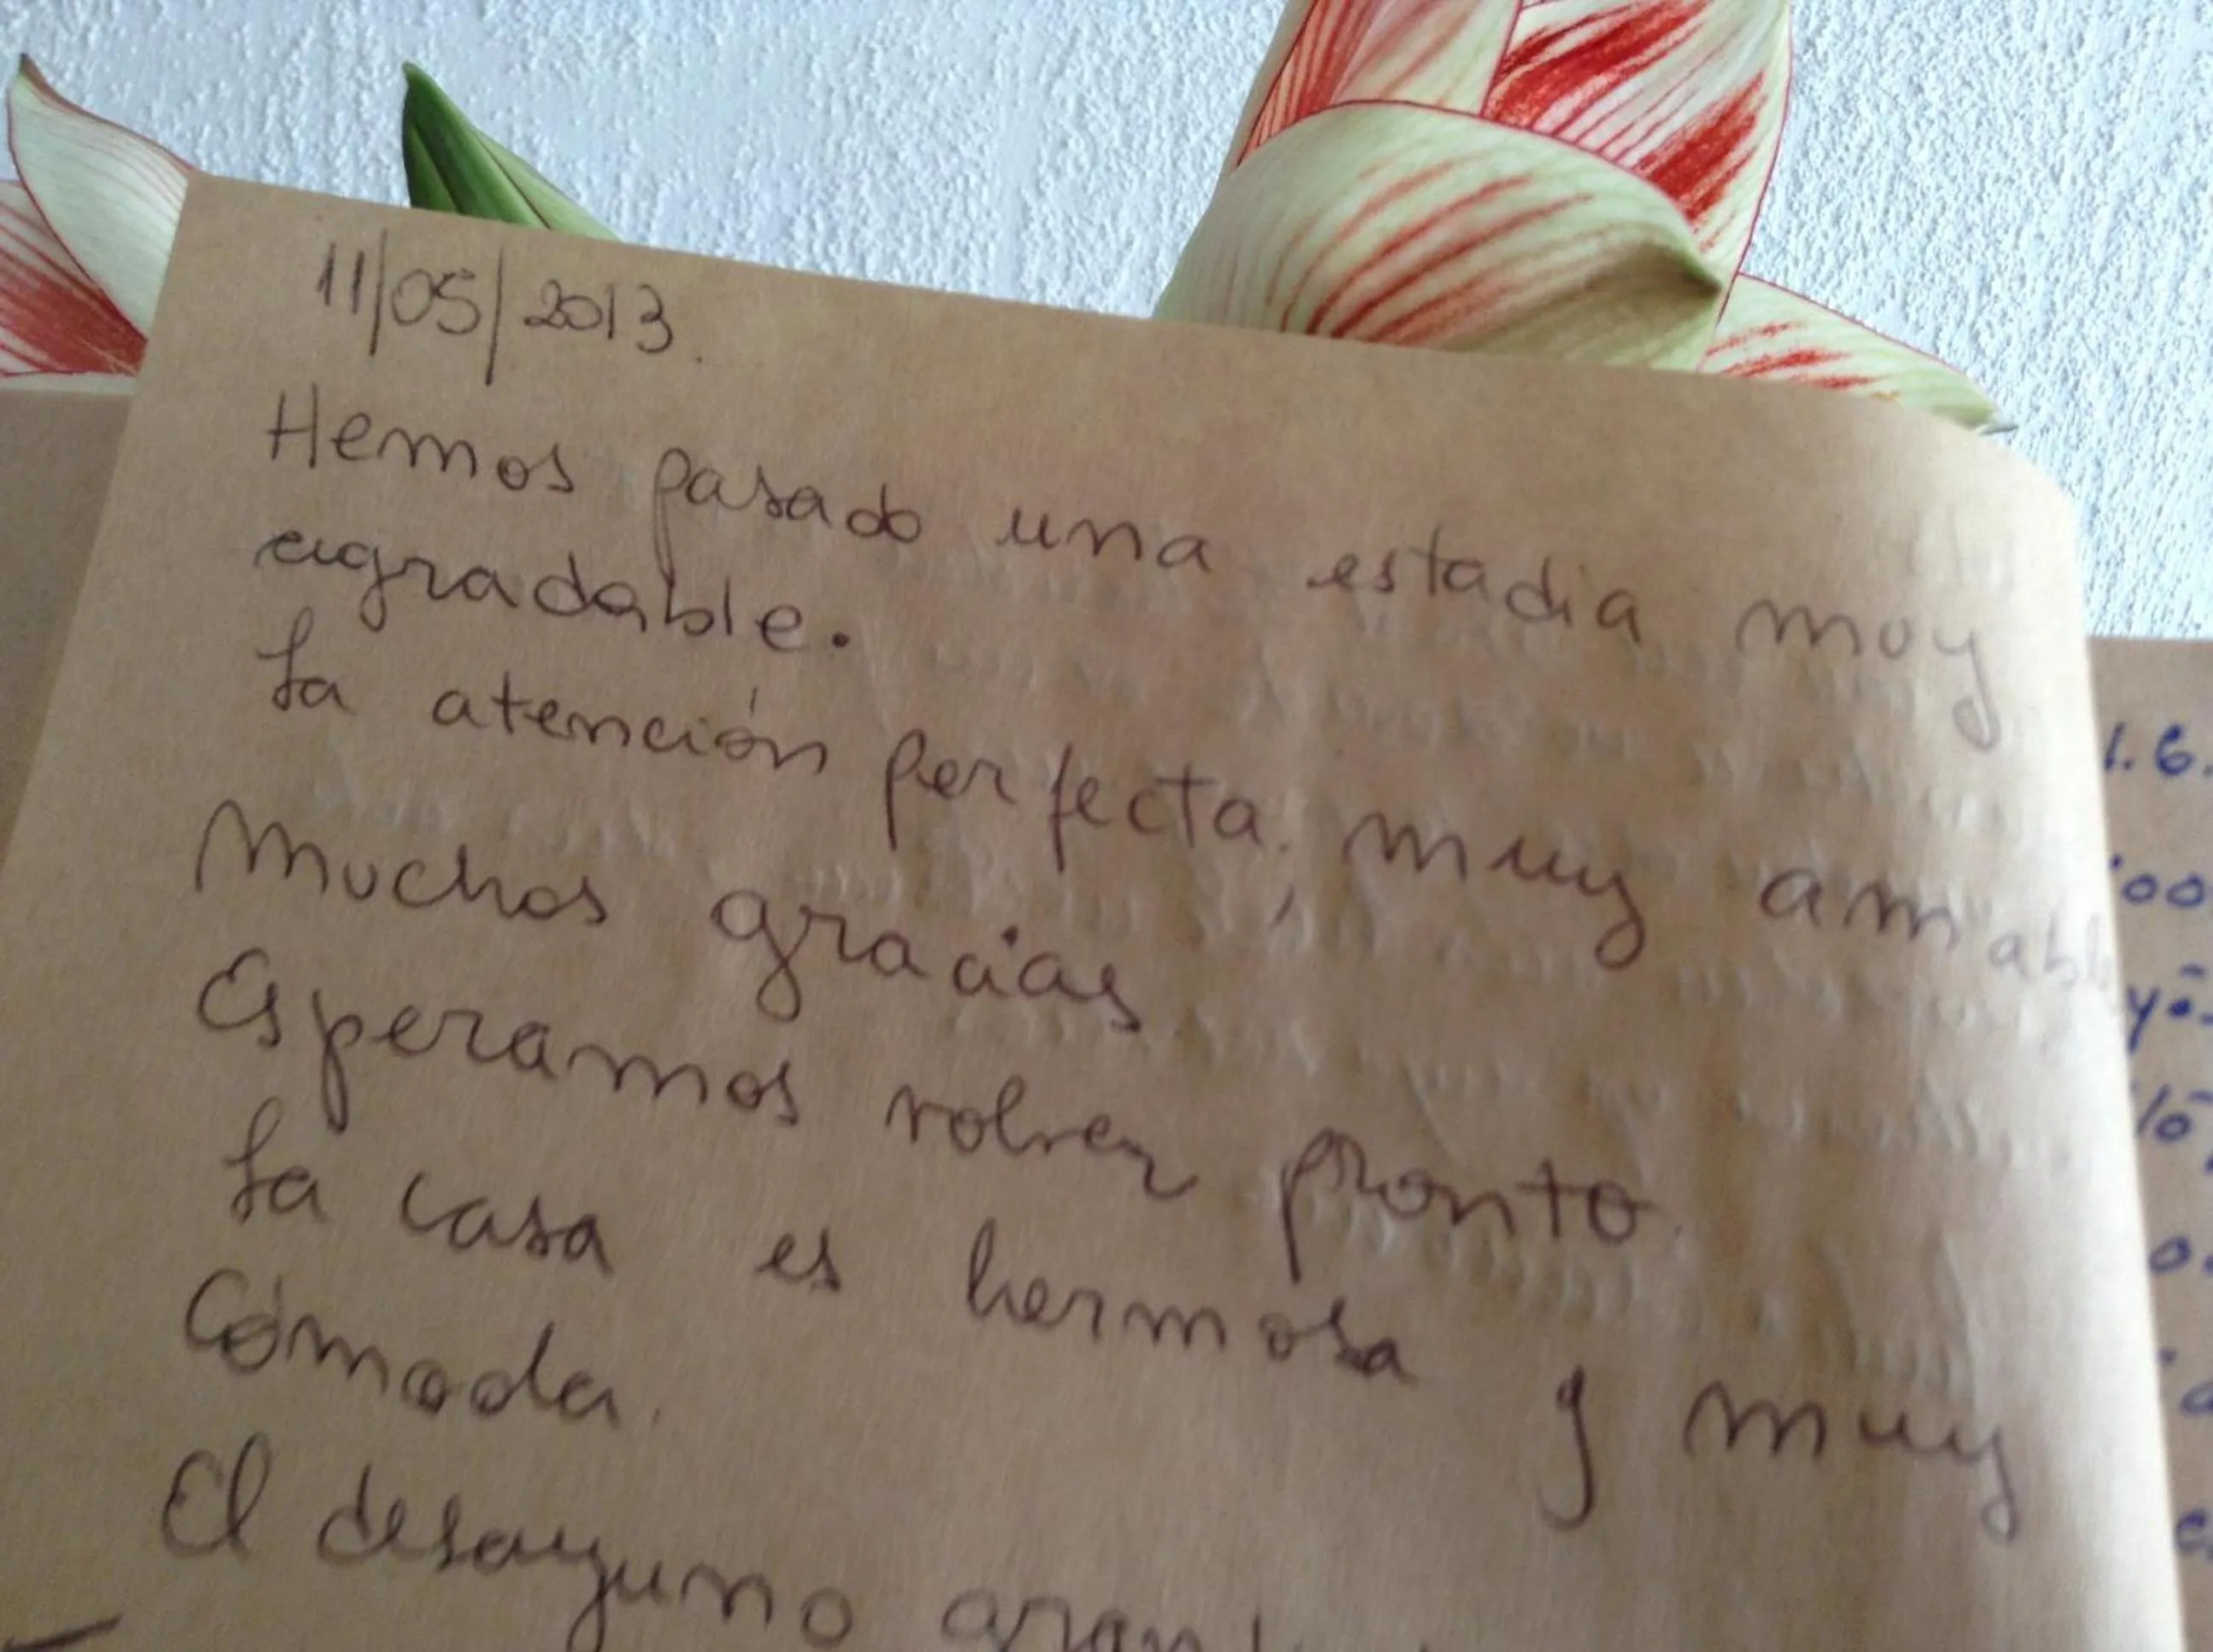 11/05/2013.
Hemos pasado una estadia muy
agradable.
La atención perfecta, muy amable
Muchos gracias
Esperamos volver pronto.
La casa es hermosa y muy
Cómoda.
El desayuno
1.6.